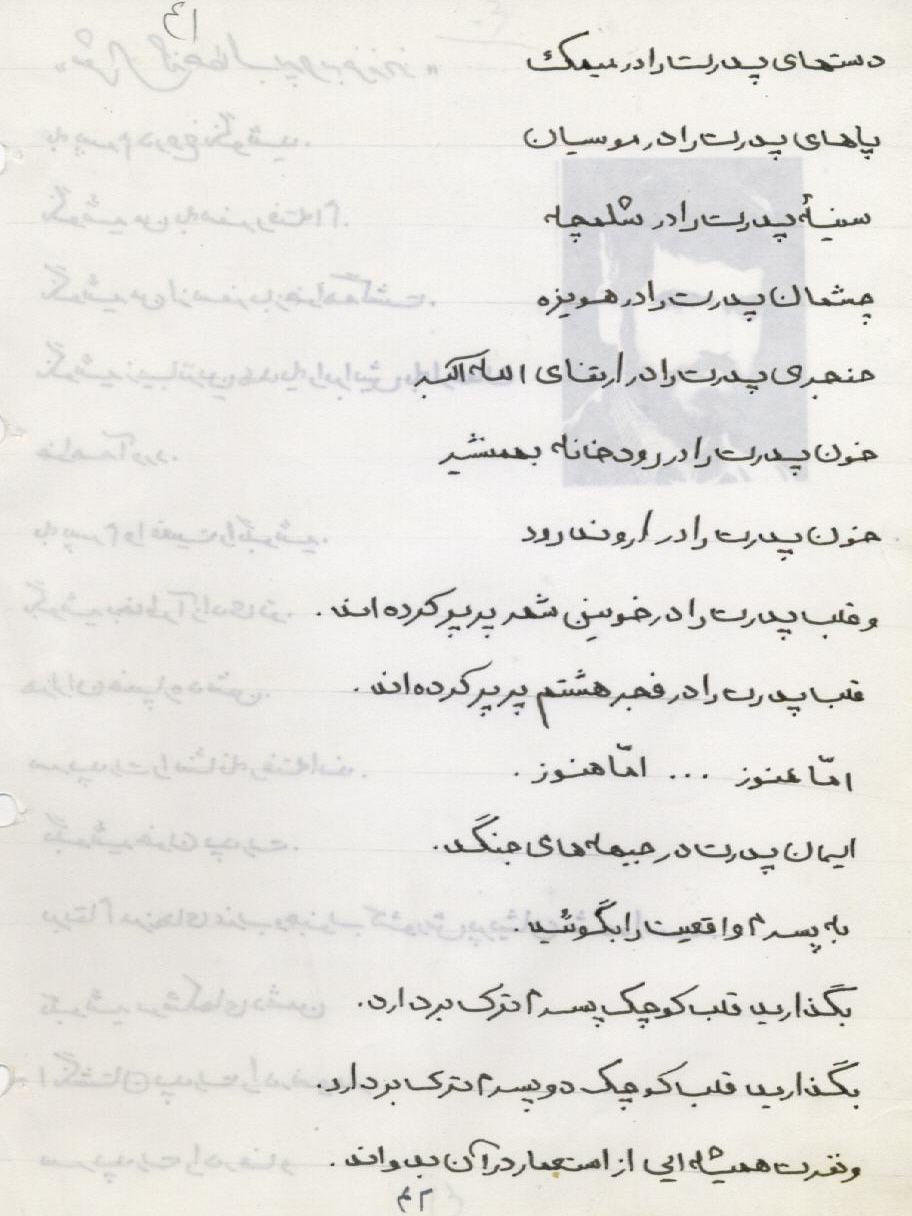 ۴۱
دستهای پدرت را در میمک
پاهای پدرت را در موسیان
سینهٔ پدرت را در شلمچه
چشمان پدرت را در هویزه
حنجره‌ی پدرت را در ارتفای الله اکبر
خون پدرت را در رودخانه بهمنشیر
خون پدرت را در اروند رود
و قلب پدرت را در خونین شهر پرپر کرده اند .
قلب پدرت را در فجر هشتم پرپر کرده اند .
امّا هنوز ... امّا هنوز .
ایمان پدرت در جبهه های جنگد .
به پسرم واقعیت را بگوئید .
بگذارید قلب کوچک پسرم ترک بردارد .
بگذارید قلب کوچک دو پسرم ترک بردارد .
و نفرت همیشه ایی از استعمار در آن بدواند .
۴۲